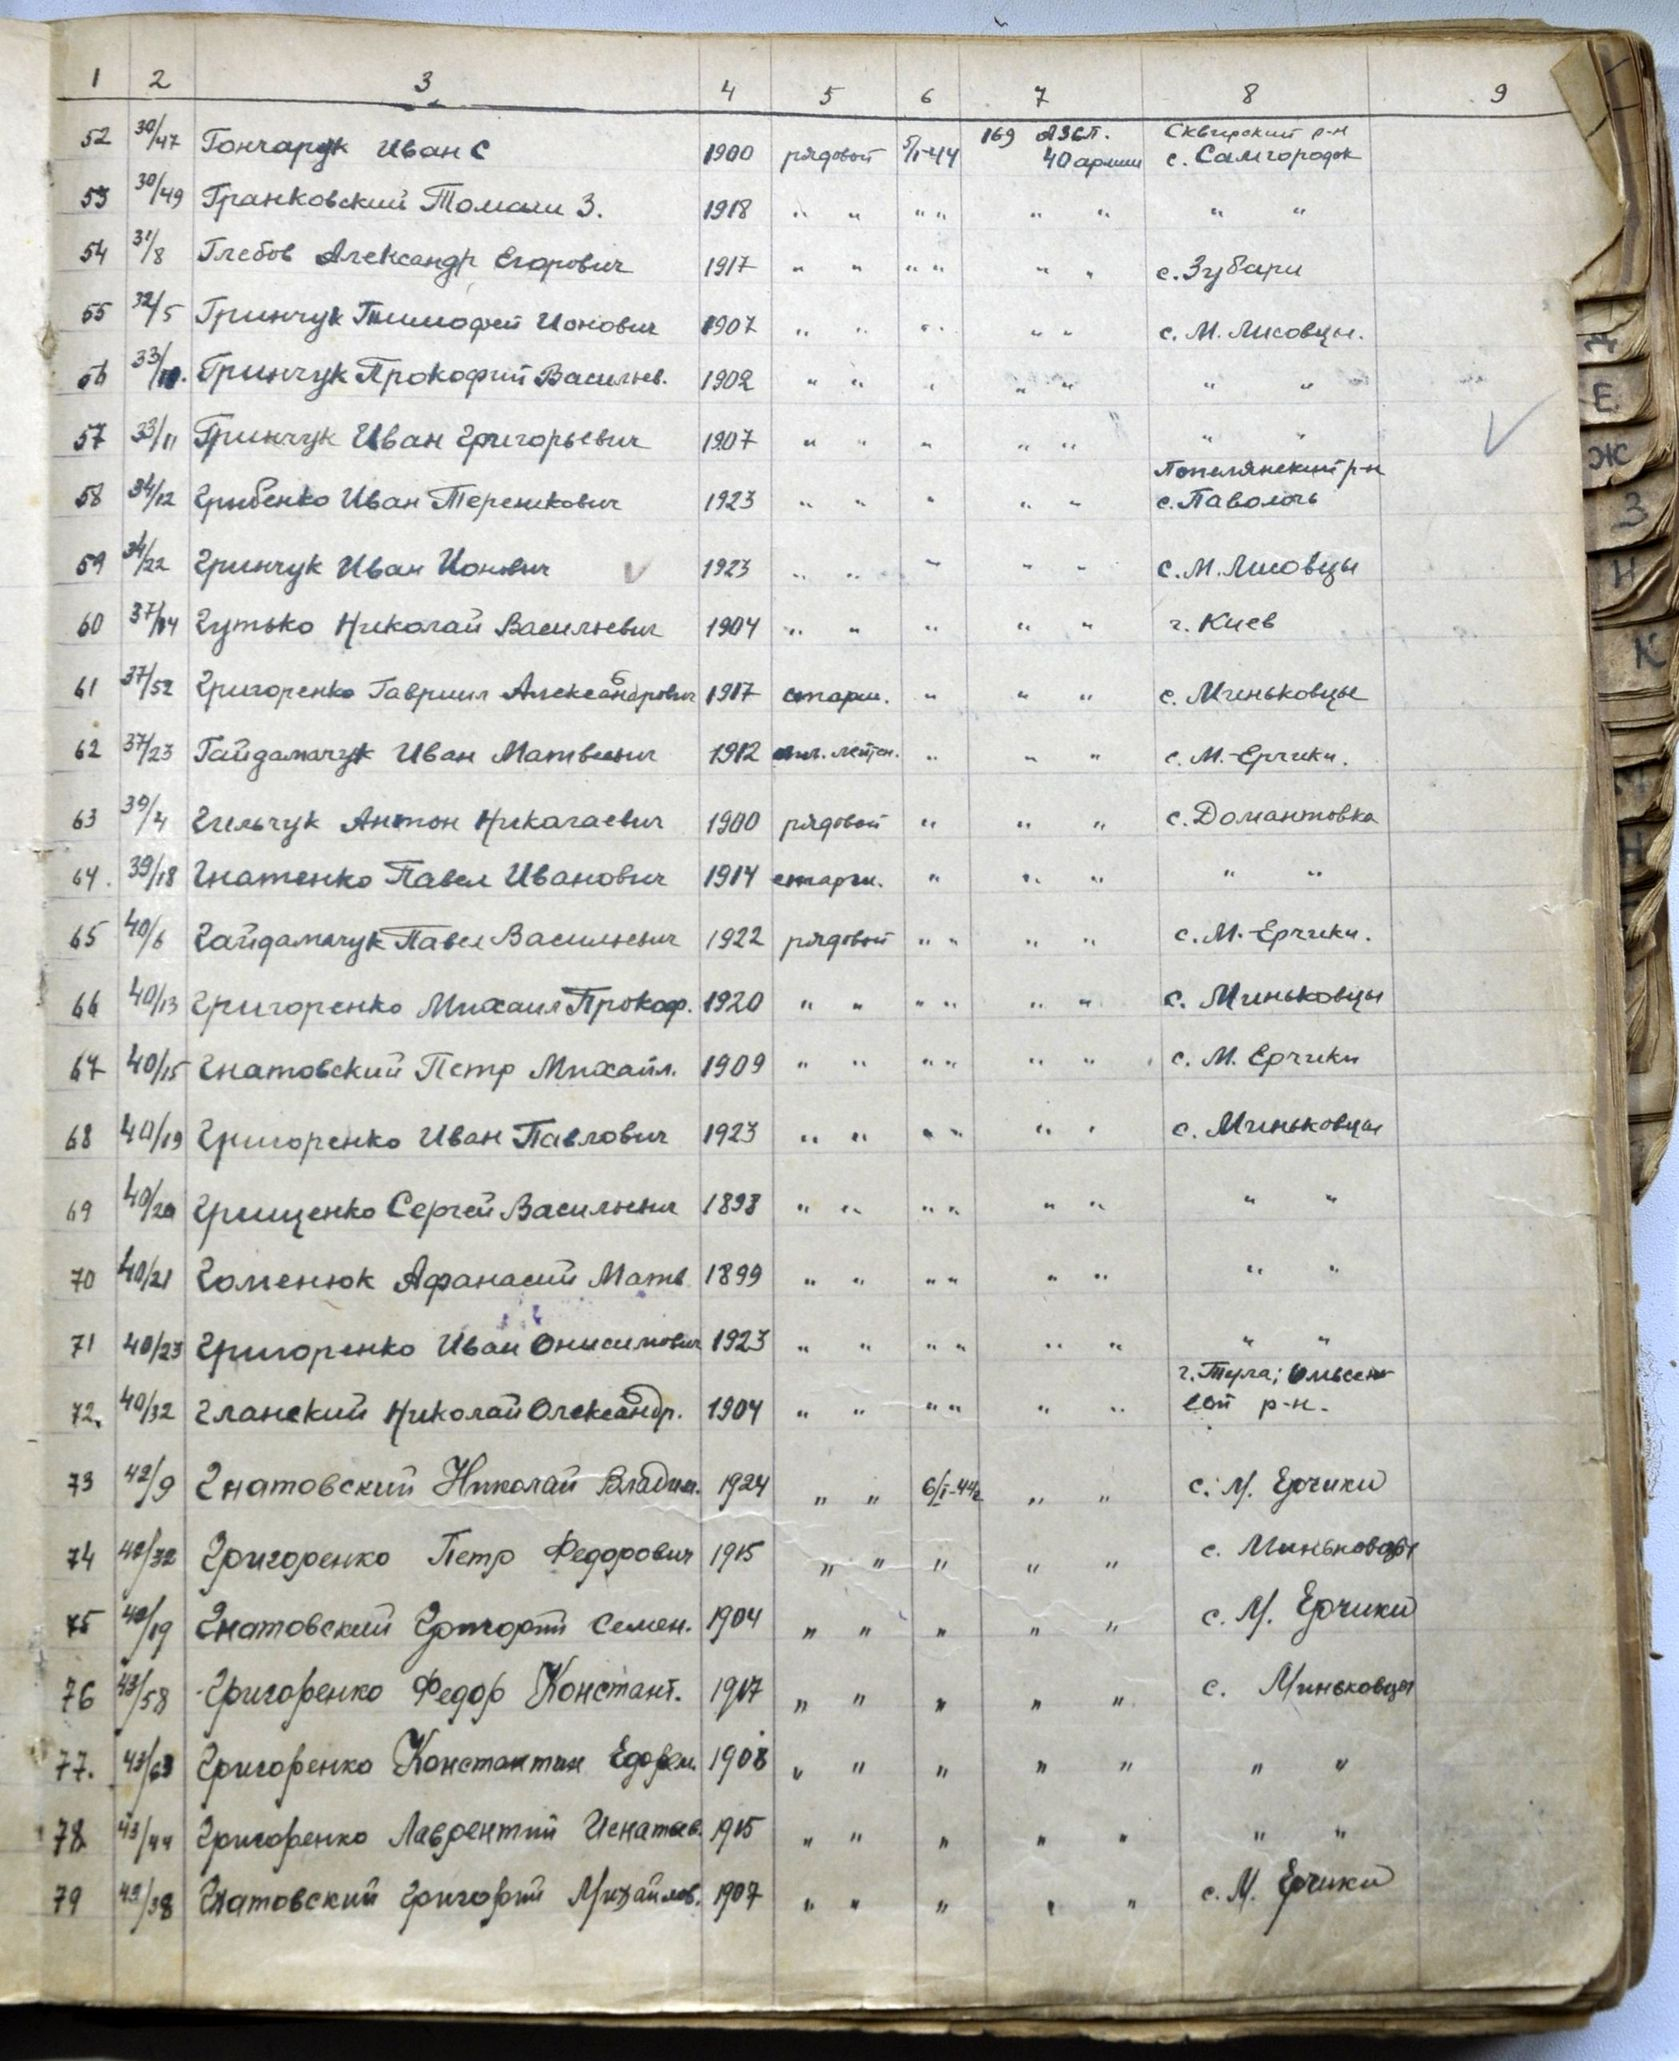 1 2 3 4 5 6 7 8 9
52 30/47 Гончарук Иван С 1900 рядовой 5/I-44 169 АЗСП. 40 армии Сквирский р-н с. Самгородок
53 30/49 Гранковский Томаш З. 1918 " " " " " " " "
54 31/8 Глебов Александр Егорович 1917 " " " " " " с. Зубари
55 32/5 Гринчук Тимофей Ионович 1907 " " " " " " с. М. Лисовцы.
56 33/10. Гринчук Прокофий Васильев. 1902 " " " " " " "
57 33/11 Гринчук Иван Григорьевич 1907 " " " " " " "
58 34/12 Грибенко Иван Терешкович 1923 " " " " " Попелянский р-н с. Паволочь
59 34/22 Гринчук Иван Ионович V 1923 " " " " " с. М. Лисовцы
60 37/14 Гутько Николай Васильевич 1904 " " " " " г. Киев
61 37/52 Григоренко Гавриил Александрович 1917 старш. " " " с. Миньковцы
62 37/23 Гайдамачук Иван Матвеевич 1912 мл. лейтен. " " " с. М.-Ерчики.
63 39/4 Гильчук Антон Николаевич 1900 рядовой " " " с. Домантовка
64. 39/18 Гнатенко Павел Иванович 1914 старш. " " " " "
65 40/6 Гайдамачук Павел Васильевич 1922 рядовой " " " " с. М.-Ерчики.
66 40/13 Григоренко Михаил Прокоф. 1920 " " " " " " с. Миньковцы
67 40/15 Гнатовский Петр Михайл. 1909 " " " " " " с. М. Ерчики
68 40/19 Григоренко Иван Павлович 1923 " " " " " " с. Миньковцы
69 40/20 Грищенко Сергей Васильевич 1898 " " " " " " " "
70 40/21 Гоменюк Афанасий Матв 1899 " " " " " " " "
71 40/23 Григоренко Иван Онисимович 1923 " " " " " " " "
72. 40/32 Гланский Николай Олександр. 1904 " " " " " " г. Тула; р-н.
73 42/9 Гнатовский Николай Владим. 1924 " " 6/I-44г " " с. М. Ерчики
74 42/32 Григоренко Петр Федорович 1915 " " " " " с. Миньковцы
75 42/19 Гнатовский Григорий Семен. 1904 " " " " " с. М. Ерчики
76 43/58 Григоренко Федор Констант. 1917 " " " " " с. Миньковцы
77. 43/63 Григоренко Константин Ефрем. 1908 " " " " " " "
78 43/44 Григоренко Лаврентий Игнатьев. 1915 " " " " " " "
79 42/38 Гнатовский Григорий Михайлов. 1907 " " " " " с. М. Ерчики
Д
Е
Ж
З
И
К
Н